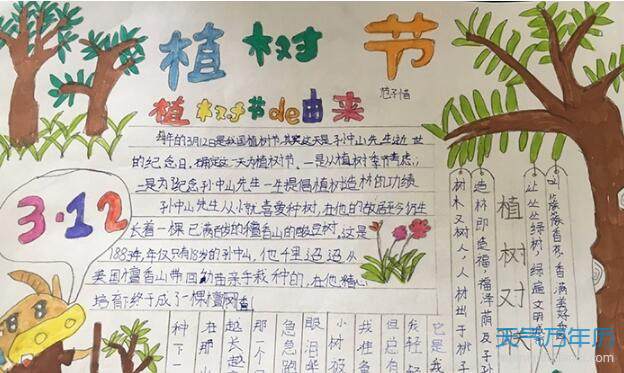 植树节
范子恒
植树节de由来
每年的3月12日是我国植树节,其实这天是孙中山先生逝世
的纪念日。确定这一天为植树节,一是从植树季节考虑,
二是为纪念孙中山先生一生提倡植树造林的功绩。
孙中山先生从小就喜爱种树,在他的故居至今仍生
长着一棵已满百龄的檀香山的酸豆树。这是
1883年,年仅只有18岁的孙中山,他千里迢迢从
美国檀香山带回幼苗亲手栽种的,在他精心
培育终于成了一棵檀树
3·12
植树对联
让丛丛绿树,绿遍文明
造林即造福,福泽荫及子孙
树木又树人,人材出于桃李
它是我
我轻轻
但总有
我准备
小树苗
眼泪
急急跑
那一个
越长越
在那
种下一
天气万年历